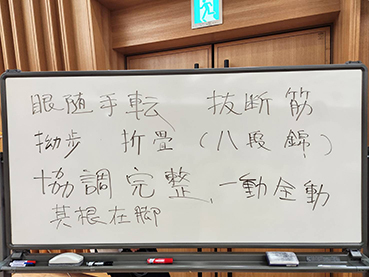 眼随手転 抜断筋
拗步 折畳 (八段錦)
協調完整、一動全動
其根在脚